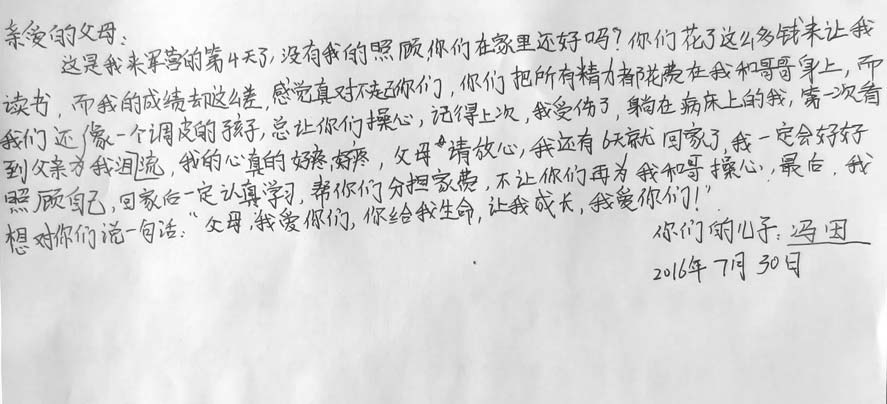 亲爱的父母:
这是我来军营的第4天了,没有我的照顾,你们在家里还好吗?你们花了这么多钱来让我
读书,而我的成绩却这么差,感觉真对不起你们,你们把所有精力都花费在我和哥哥身上,而
我们还像一个调皮的孩子,总让你们操心,记得上次,我受伤了,躺在病床上的我,第一次看
到父亲为我泪流,我的心真的好疼,好疼,父母请放心,我还有6天就回家了,我一定会好好
照顾自己,回家后一定认真学习,帮你们分担家费,不让你们再为我和哥操心,最后,我
想对你们说一句话:“父母,我爱你们,你给我生命,让我成长,我爱你们!”
你们的儿子:冯田
2016年7月30日